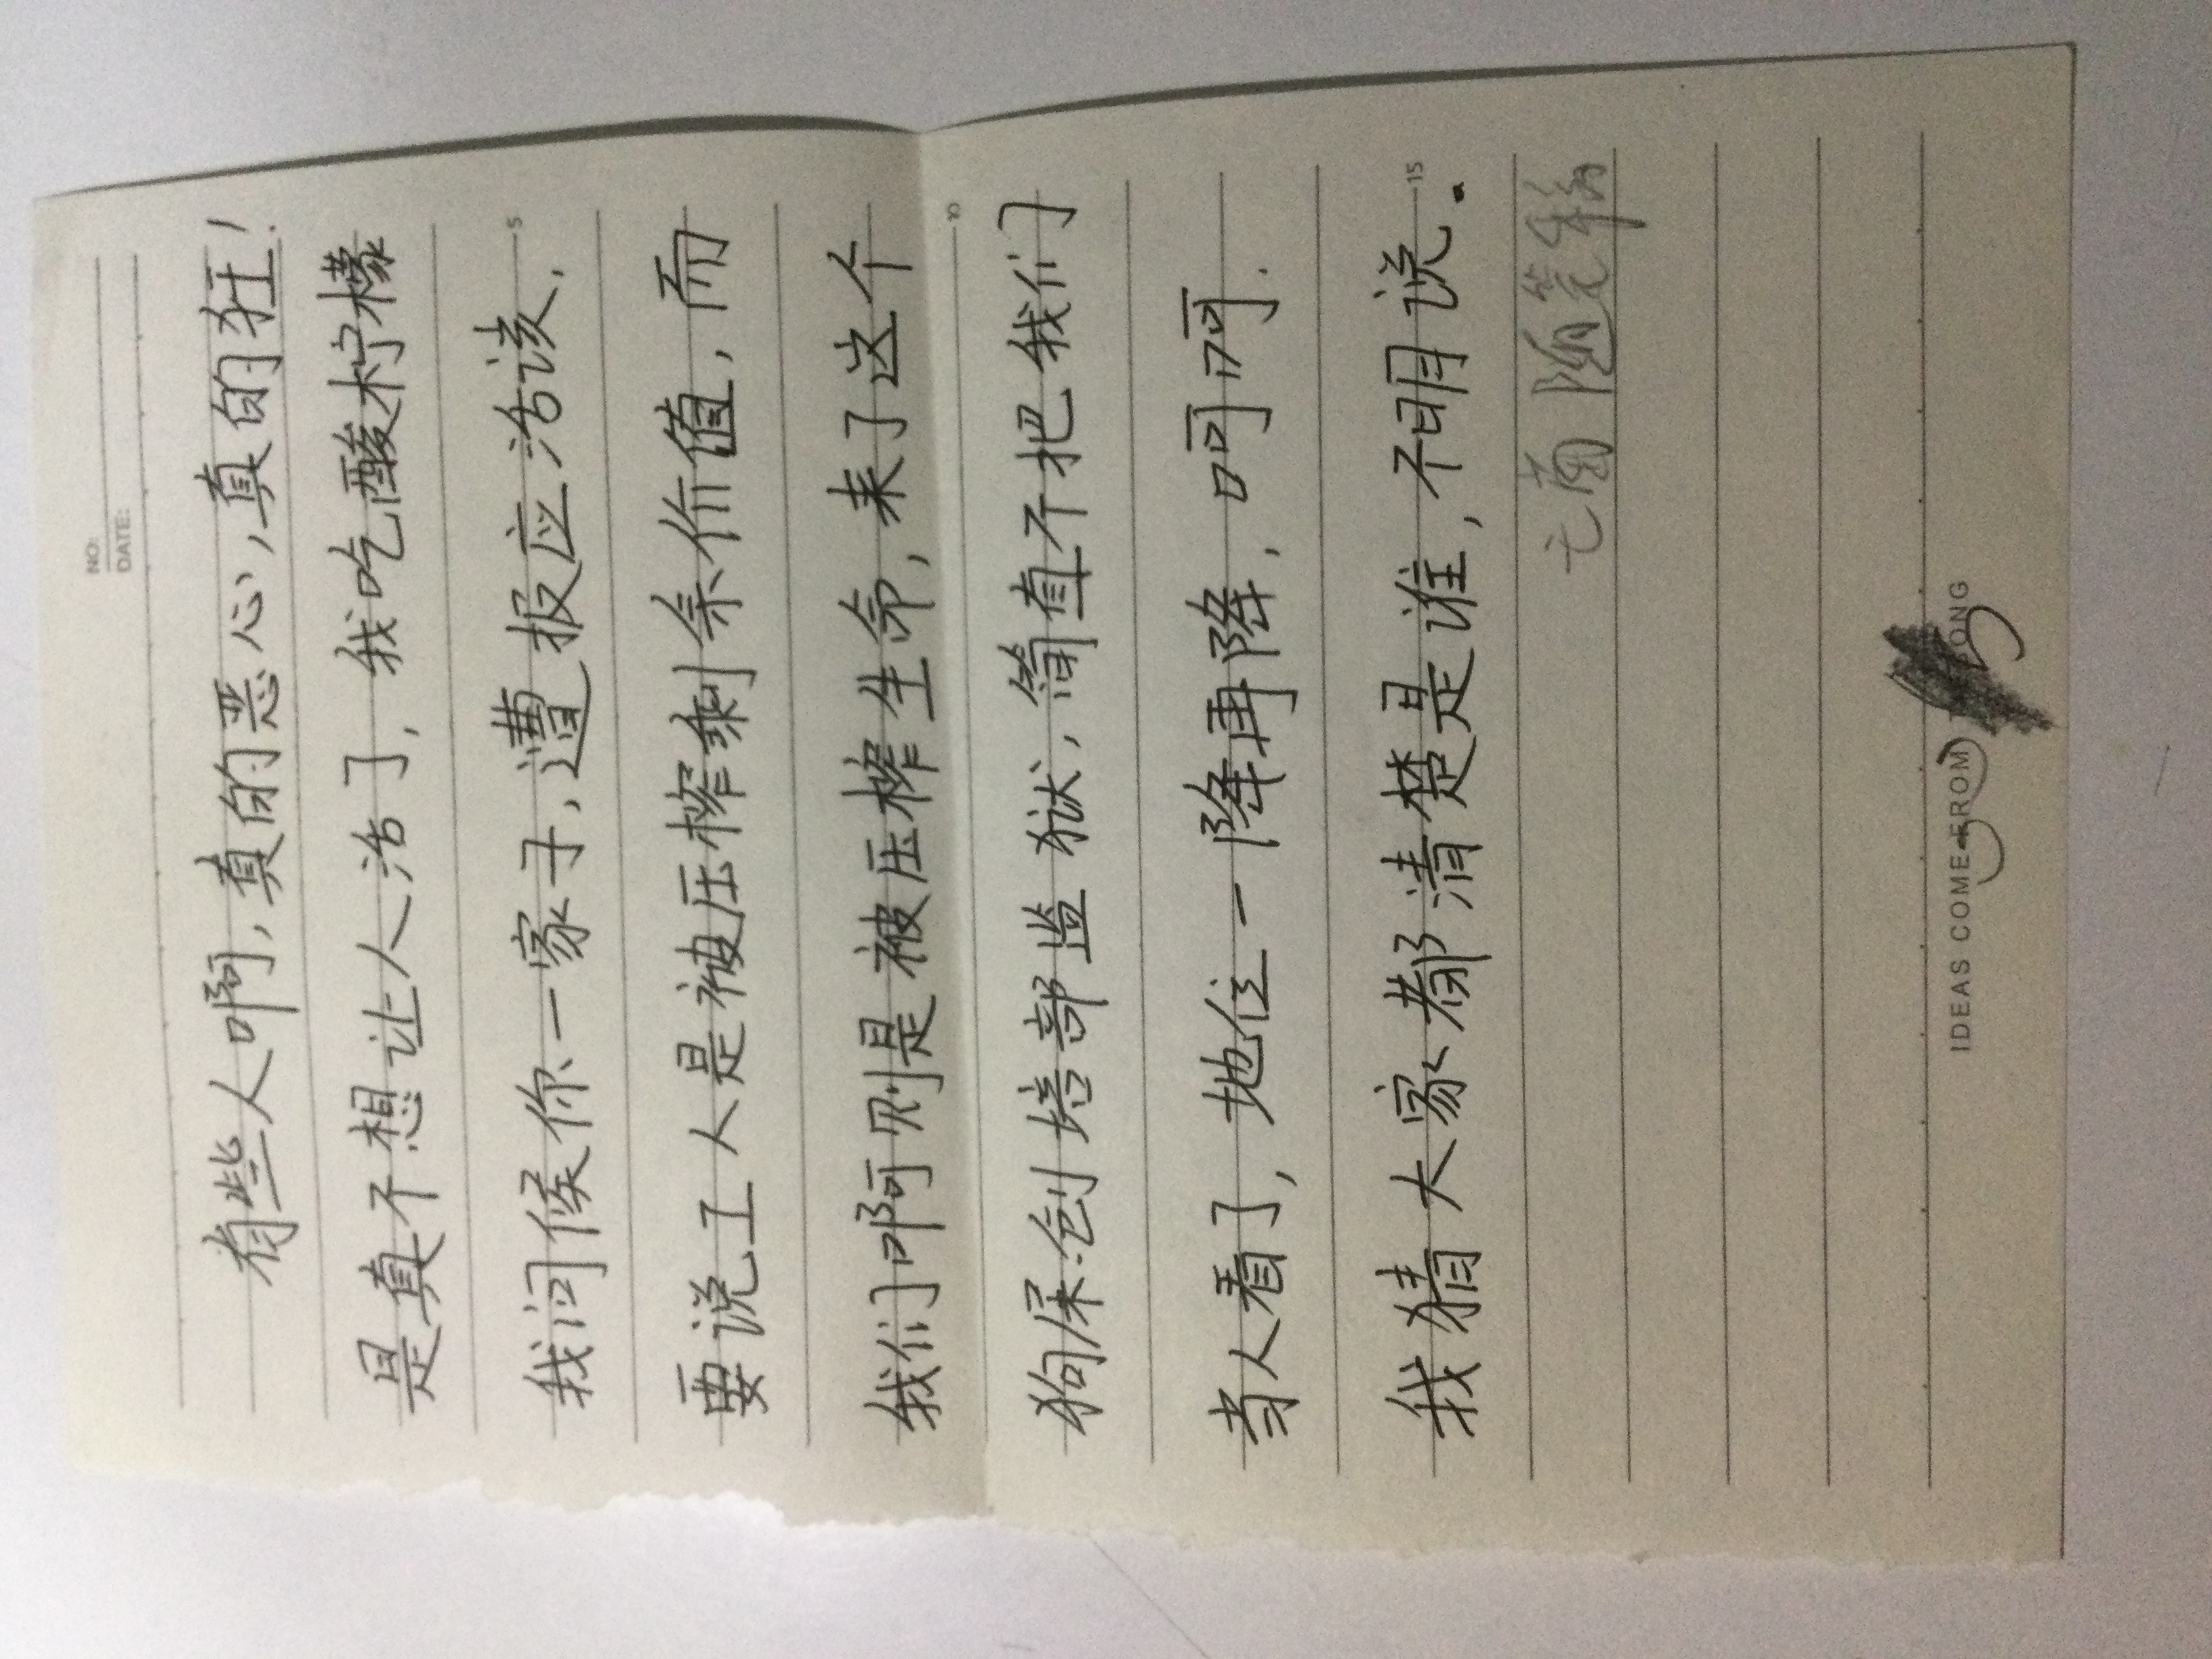 NO:
DATE:
有些人啊,真的恶心,真的狂!
是真不想让人活了,我吃酸柠檬
我问候你一家子,遭报应活该,
5
要说工人是被压榨剩余价值,而
我们啊则是被压榨生命,来了这个
10
狗屎创培部监狱,简直不把我们
当人看了,地位一降再降,呵呵.
我猜大家都清楚是谁,不明说.
15
随笔稿
IDEAS COME FROM